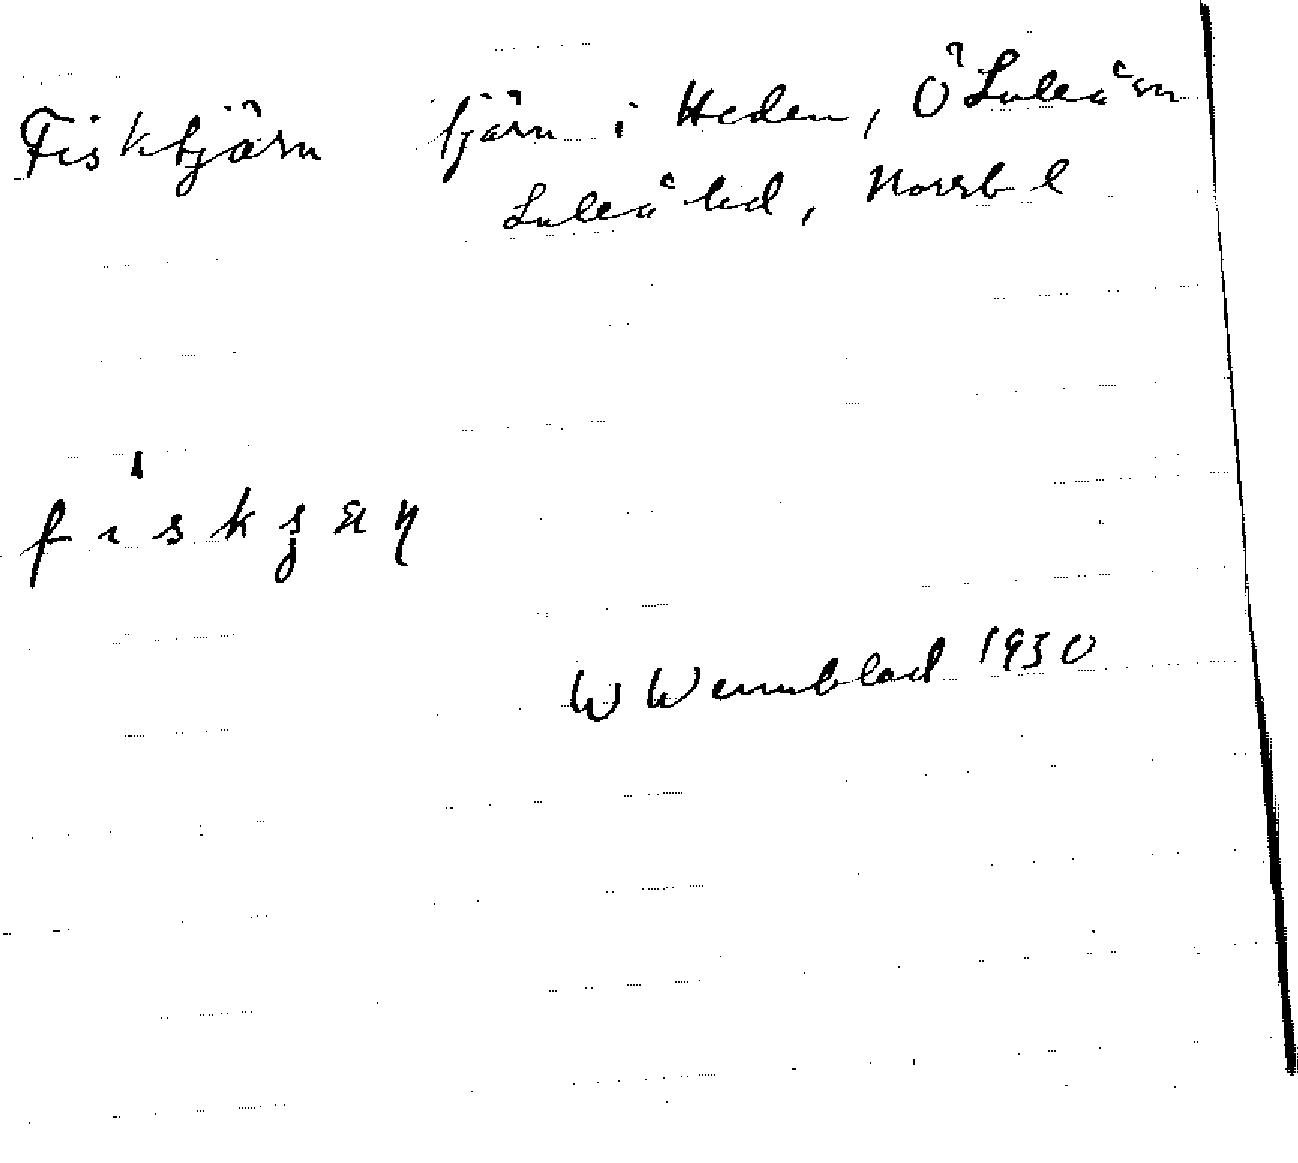 Fisktjärn tjärn i Heden, Ö Luleå sn
Luleå hd, Norrb l
W Wennblad 1930